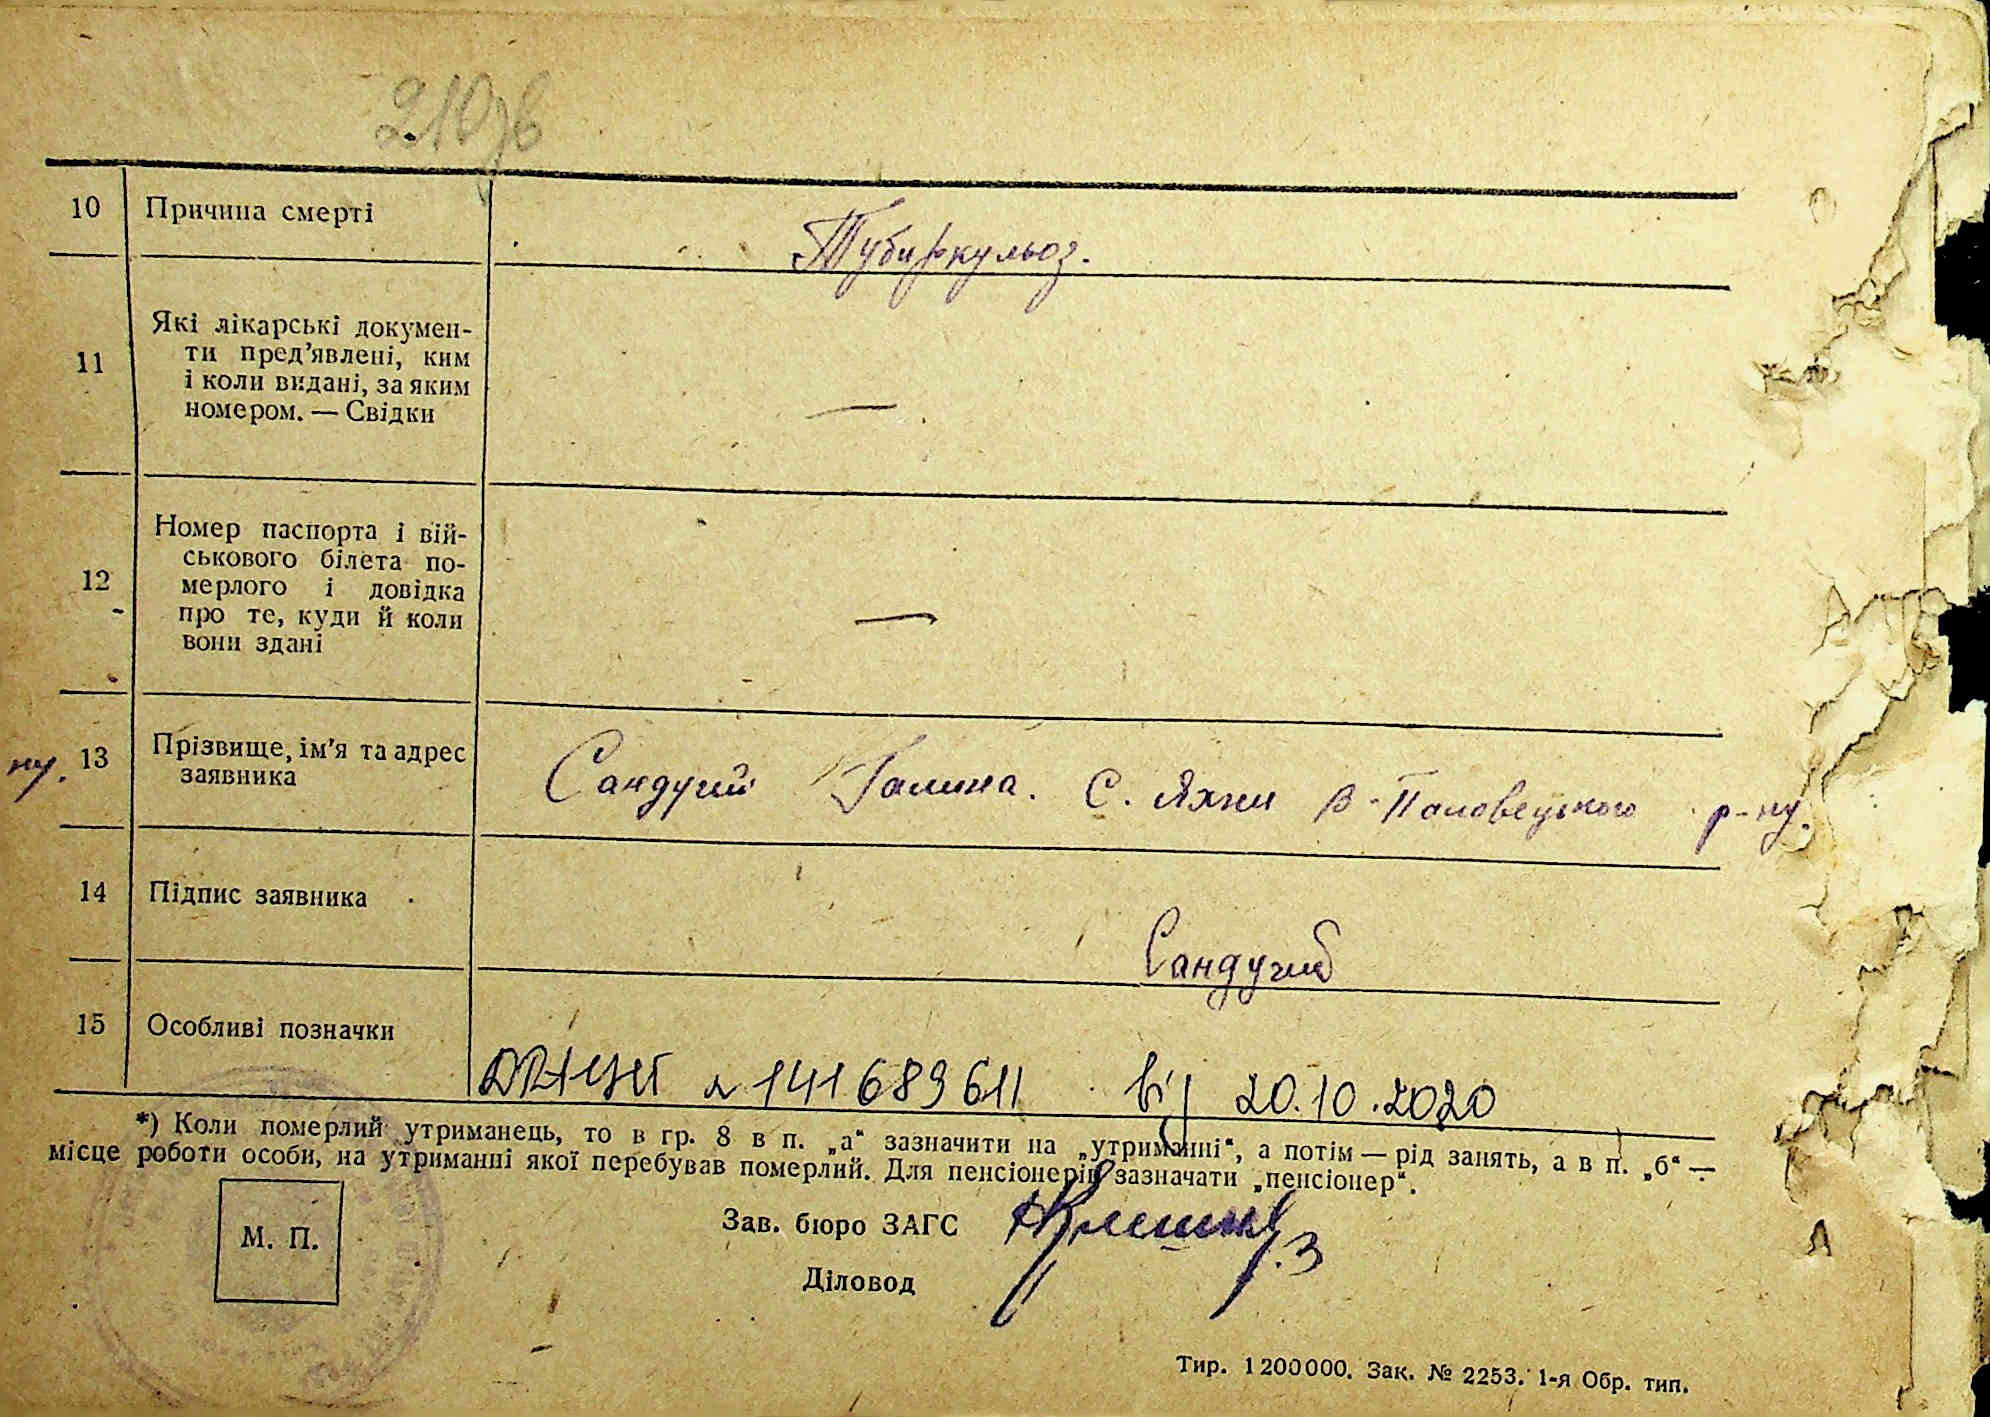 210зв
10 Причина смерті
Тубиркульоз.
11 Які лікарські докумен-
ти пред’явлені, ким
і коли видані, за яким
номером. — Свідки
—
12 Номер паспорта і вій-
ськового білета по-
мерлого і довідка
про те, куди й коли
вони здані
—
ну. 13 Прізвище, ім’я та адрес
заявника
Сандугий Галина. С. Яхни В-Половецького р-ну.
14 Підпис заявника
Сандугий
15 Особливі позначки
№ 141689611 від 20.10.2020
*) Коли померлий утриманець, то в гр. 8 в п. „а“ зазначити на „утриманні“, а потім — рід занять, а в п. „б“ —
місце роботи особи, на утриманні якої перебував померлий. Для пенсіонерів зазначати „пенсіонер“.
М. П.
Зав. бюро ЗАГС
Діловод
Тир. 1200000. Зак. № 2253. 1-я Обр. тип.